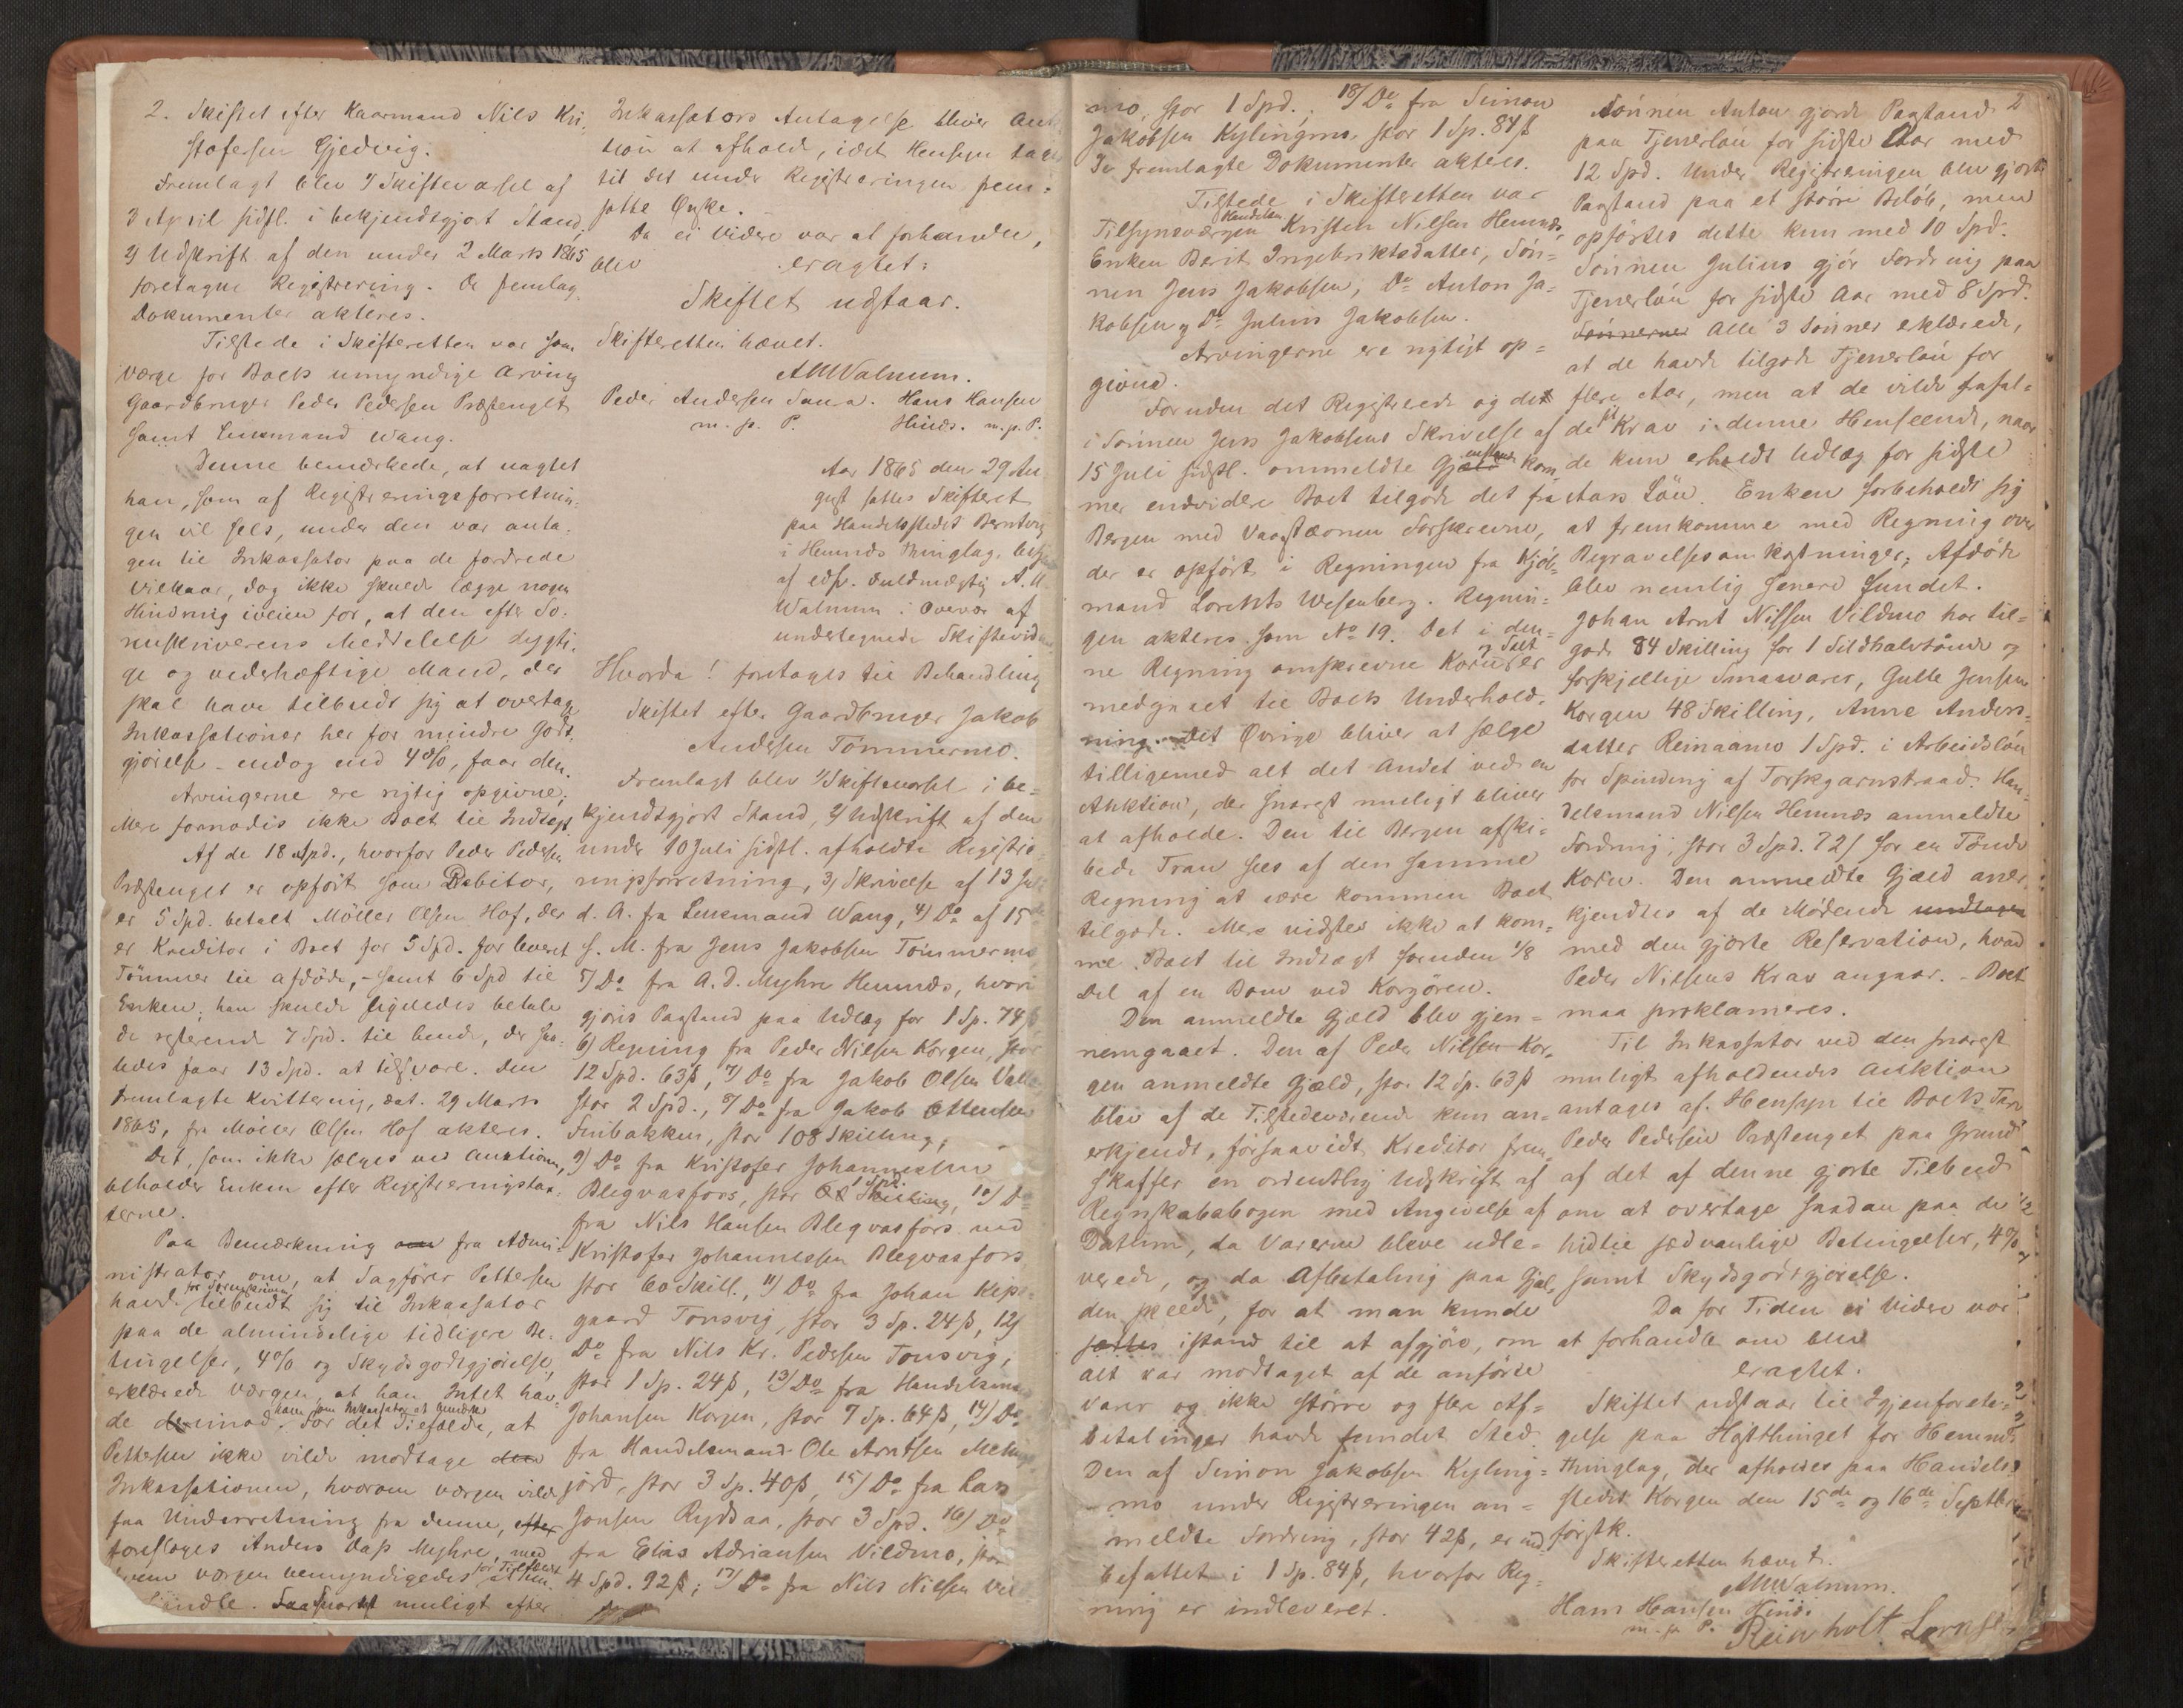 2. Skiftet efter Kaarmand Nils Kri-
stofersen Gjedvig.
Fremlagt blev 1) Skiftevarsel af
3 April sidstl. i bekjendtgjort Stand,
2) Udskrift af den under 2 Marts 1865
foretagne Registrering. De fremlag.
Dokumenter akteres.
Tilstede i Skifteretten var som
Værge for Boets umyndige Arving
Gaardbruger Peder Pedersen Præstenget
samt Lensmand Wang.
Denne bemærkede, at uagtet
han, som af Registreringsforretnin-
gen vil sees, under den var anta-
gen til Inkassator paa de fordrede
Vilkaar, dog ikke skulde lægge nogen
Hindring iveien for, at den efter So-
renskriverens Meddelelse dygti-
ge og vederhæftige Mand, der
skal have tilbudt sig at overtage
Inkassationer her for mindre Godt-
gjörelse endog end 4 %, faar den.
Arvingerne ere rigtig opgivne;
Mere formodes ikke Boet til Indtægt.
Af de 18 Spd., hvorfor Peder Pedersen
Præstenget er opfört som Debitor,
er 5 Spd. betalt Möller Olsen Hof, der
er Kreditor i Boet for 5 Spd. for leveret
Tömmer til afdöde, - samt 6 Spd til
Enken; han skulde ligeledes betale
de resterende 7 Spd. til hende, der saa-
ledes faar 13 Spd. at tilsvare. Den
fremlagte Kvittering, dat. 29 Marts
1865, fra Möller Olsen Hof akteres.
Det, som ikke sælges ved Auktionen,
beholder Enken efter Registreringstax-
terne.
Paa Bemærkning om fra Admi-
nistrator om, at Sagförer Pettersen
for Sorenskriveren
havde tilbudt sig til Inkassator
paa de almindelige tidligere Be-
tingelser, 4 % og Skydsgodtgjörelse,
erklærede Værgen, at han Intet hav-
de derimod. For det Tilfælde, at
Pettersen ikke vilde modtage den
Inkassationen, hvorom værgen vilde
faa Underretning fra denne, efter
foresloges Anders Dass Myhre, med
hvem værgen bemyndigedes at un-
handle. Saasnart muligt efter
Inkassators Antagelse bliver Auk-
tion at afholde, idet Hensyn tages
til det under Registreringen frem-
satte Ønske.
Da ei Videre var at forhandle,
blev eragtet:
Skiftet udstaar.
Skifteretten hævet.
AMWalnum.
Peder Andersen Sana. Hans Hansen
m. p. P. Hinds. m. p. P.
Aar 1865 den 29 Au-
gust sattes Skifteret
paa Handelsstedet
i Hemnæs Thinglag, betjent
af edsv. Fuldmægtig A. M.
Walnum i Overvær af
undertegnede Skiftevidner
Hvorda! foretages til Behandling
Skiftet efter Gaardbruger Jakob
Andersen Tömmermo.
Fremlagt blev 1) Skiftevarsel i be-
kjendtgjort Stand, 2) Udskrift af den
under 10 Juli sidstl. afholdte Registre-
ringsforretning, 3) Skrivelse af 13 Juli
d. A. fra Lensmand Wang, 4) Do af 15de
s. M. fra Jens Jakobsen Tömmermo
5) Do fra A. D. Myhre Hemnæs, hvori
gjöres Paastand paa Udlæg for 1 Sp. 74 ß,
6) Regning fra Peder Nilsen Korgen, stor
12 Spd. 63 ß, 7) Do fra Jakob Olsen
stor 2 Spd., 8) Do fra Jakob Ottensen
Finbakken, stor 108 Skilling,
9) Do fra Kristofer Johannesen
Blegvasfors, stor 1 Spd, 10) Do
fra Nils Hansen Blegvasfors ved
Kristofer Johannessen Blegvasfors
stor 60 Skill., 11) Do fra Johan
gaard Tonsvig, stor 3 Sp. 24 ß, 12)
Do fra Nils Kr. Pedersen Tonsvig,
stor 1 Sp. 24 ß, 13) Do fra Handelsmand
Johansen Korgen, stor 7 Sp. 64 ß, 14) Do
fra Handelsmand Ole Arntsen
jord, stor 3 Sp. 40 ß, 15) Do fra Lars
Jonsen Rydsaa, stor 3 Spd. 16) Do
fra Elias Adriansen Vildmo, stor
4 Spd. 92 ß; 17) Do fra Nils Nilsen Vild-
mo, stor 1 Spd.; 18) Do fra Simon
Jakobsen Kylingmo, stor 1 Sp. 84 ß
De fremlagte Dokumenter akteres.
Tilstede i Skifteretten var
Tilsynsværgen Kristen Nilsen Hemnæs,
Enken Berit Ingebriktsdatter, Søn-
nen Jens Jakobsen, Do Anton Ja-
kobsen og Do Julius Jakobsen.
Arvingerne ere rigtigt op-
givne.
Foruden det Registrerede og det
i Sønnen Jens Jakobsens Skrivelse af
15 Juli sidstl. ommeldte kom-
mer endvidere Boet tilgode det fra
Bergen med Vaarstævnen Forskrevne,
der er opfört i Regningen fra Kjöb-
mand Lorents Wesenberg. Regnin-
gen akteres som No 19. Det i den-
og Salt
ne Regning omskrevne Korn er
medgaaet til Boets Underhold-
ning. Det Øvrige bliver at sælge
tilligemed alt det Andet ved en
Auktion, der snarest muligt bliver
at afholde. Den til Bergen afski-
bede Tran sees af den samme
Regning at være kommen Boet
tilgode. Mere vidstes ikke at kom-
me Boet til Indtægt foruden 1/8
Del af en Bom ved Korgören.
Den anmeldte Gjæld blev gjen-
nemgaaet. Den af Peder Nilsen Kor-
gen anmeldte Gjæld, stor 12 Sp. 63 ß
blev af de Tilstedeværende kun an-
erkjendt, forsaavidt Kreditor frem-
skaffer en ordentlig Udskrift af
Regnskabsbogen med Angivelse af
Datum, da Varerne bleve udle-
verede, og da Afbetaling paa Gjæl-
den skede, for at man kunde
sættes istand til at afgjöre, om
alt var modtaget af de anförte
Varer og ikke större og flere Af-
betalinger havde fundet Sted.
Den af Simon Jakobsen Kyling-
mo under Registreringen an-
meldte Fordring, stor 42 ß, er ind-
befattet i 1 Sp. 84 ß, hvorfor Reg-
ning er indleveret.
2
Sønnen Anton gjorde Paastand
paa Tjenerlön for sidste Aar med
12 Spd. Under Registreringen blev gjort
Paastand paa et större Belöb, men
opförtes dette kun med 10 Spd.
Sønnen Julius gjör Fordring paa
Tjenerlön for sidste Aar med 8 Spd.
Sønnerne Alle 3 Sønner erklærede,
at de havde tilgode Tjenerlön for
flere Aar, men at de vilde frafal-
de Krav i denne Henseende, naar
de kun erholdt Udlæg for sidste
Aars Lön. Enken forbeholdt sig
at fremkomme med Regning over
Begravelsesomkostninger; Afdöde
blev nemlig senere fundet.
Johan Arnt Nilsen Vildmo har til-
gode 84 Skilling for 1 Sildhalvtönde og
forskjellige Smaavarer, Gulle Jensen
Korgen 48 Skilling, Anne Anders-
datter Reinaamo 1 Spd. i Arbeidslön
for Spinding af Torskgarnstraad. Han-
delsmand Nilsen Hemnæs anmeldte
Fordring, stor 3 Spd. 72 ß for en Tönde
Korn. Den anmeldte Gjæld aner-
kjendtes af de Mödende undtagen
med den gjorte Reservation, hvad
Peder Nilsens Krav angaar. - Boet
maa proklameres.
Til Inkassator ved den snarest
muligt afholdendes Auktion
antages af Hensyn til Boets Tarv
Peder Pedersen Præstenget paa Grund
af det af denne gjorte Tilbud
om at overtage saadan paa de
hidtil sædvanlige Betingelser, 4 %
samt Skydsgodtgjörelse.
Da for Tiden ei Videre var
at forhandle om blev
eragtet.
Skiftet udstaar til Igjenforeta-
gelse paa Høstthinget for Hemnæs
Thinglag, der afholdes paa Handels-
stedet Korgen den 15de og 16de Septbr
förstk.
Skifteretten hævet.
AMWalnum.
Hans Hansen Hinds
m. p. P. Reinholt